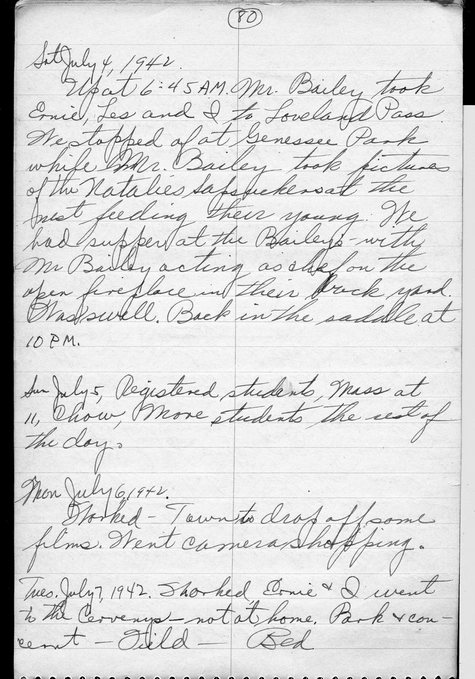 80
Sat July 4, 1942.
Up at 6:45 AM. Mr. Bailey took
Ernie, Les and I to Loveland Pass.
We stopped of at Genessee Park
while Mr. Bailey took pictures
of the Natalies Sapsuckers at the
nest feeding their young. We
had supper at the Baileys - with
Mr Bailey acting as chef on the
open fireplace in their back yard.
Was swell. Back in the saddle at
10 PM.
Sun July 5, Registered students, Mass at
11, Chow, More students the rest of
the day.
Mon July 6, 1942.
Worked - Town to drop off some
films. Went camera shopping.
Tues, July 7, 1942. Worked, Ernie & I went
to the Cervenys - not at home. Park & con-
cernt - Field - Bed